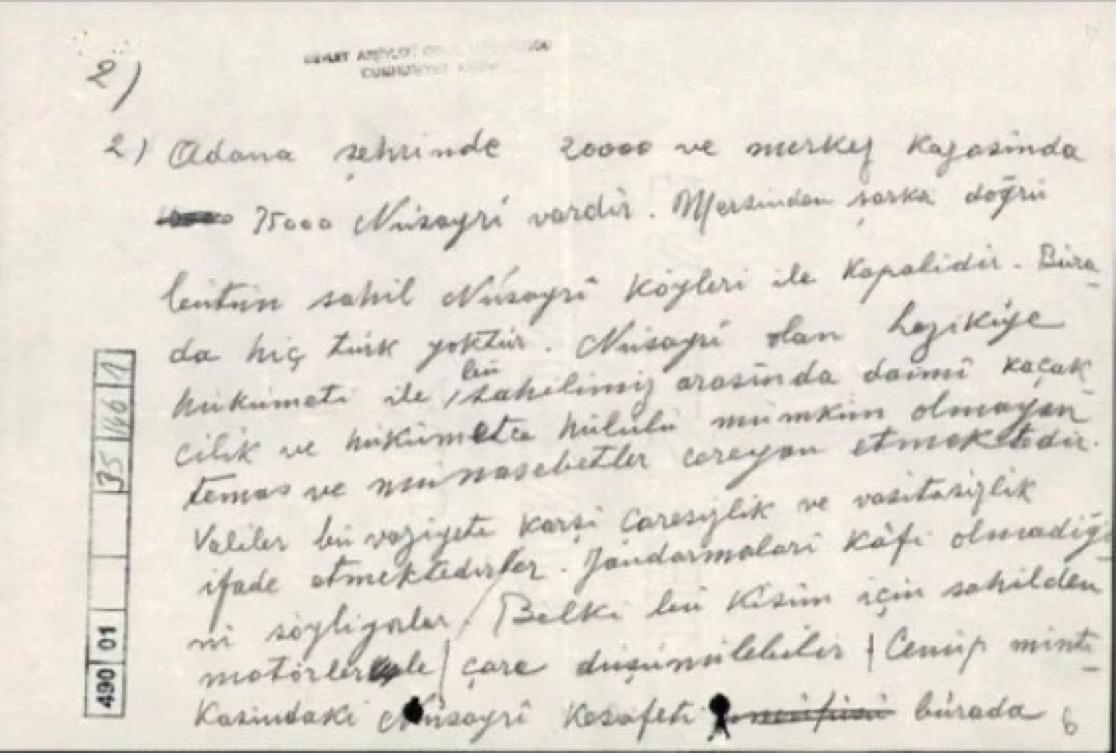 2)
DEVLET ARŞİVLERİ
CUMHURİYET
2) Adana şehrinde 20000 ve merkez kazasinda
75000 Nüsayrî vardir. Mersinden şarka doğrü
bütün sahil Nüsayrî köyleri ile kapalidir. Büra-
da hiç türk yoktür. Nüsayrî olan Lazikiye
hükümeti ile bü sahilimiz arasinda daimî kaçak-
cilik ve hükümetce hülulü mümkün olmayan
temas ve münasebetler cereyan etmektedir.
Valiler bü vaziyete karşi caresizlik ve vasitasizlik
ifade etmektedirler. Jandarmalari kâfi olmadiği
ni söyliyorlar / Belki bü kisim için sahilden
motörlerle / çare düşünülebilir / Cenüp minta-
kasindaki Nüsayrî kesafeti bürada
6
490 01 35 146 1